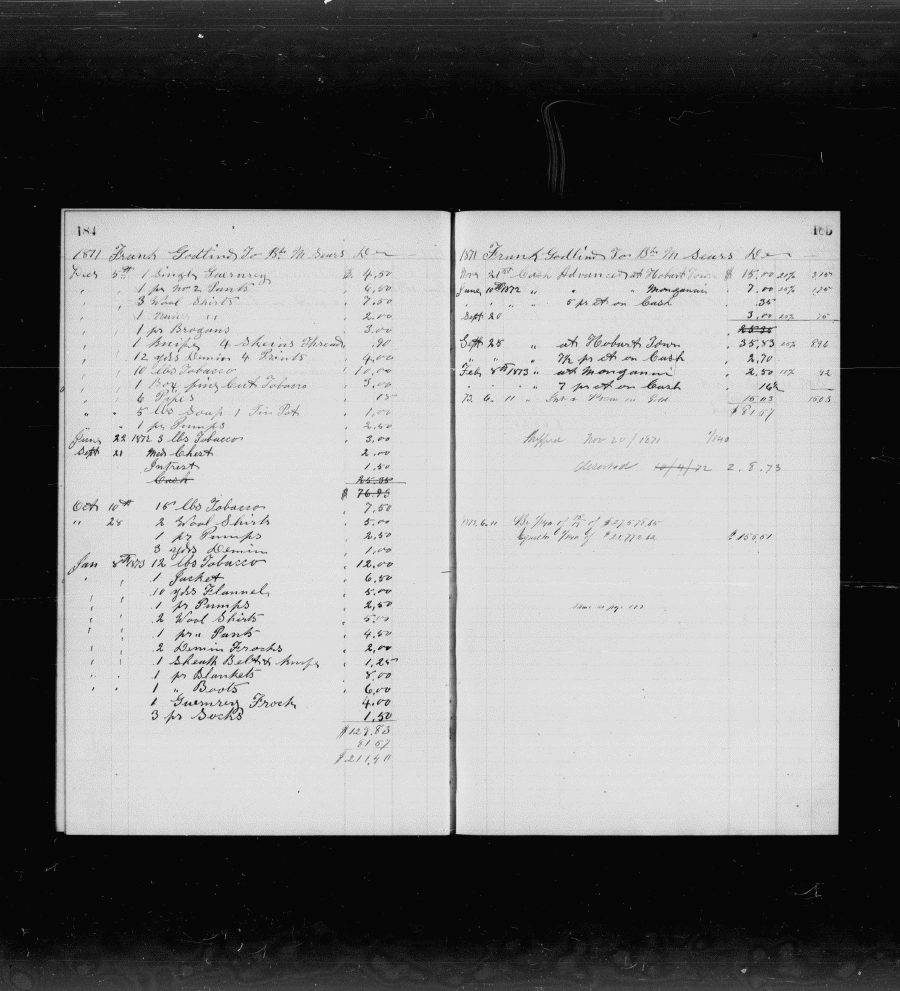 184
1871 Frank Godlind To Bk M Sears Dr
Dec 5th 1 Single Guernsey $ 4.50
" " 1 pr No 2 Pants " 4,00
3 Wool Shirts " 7,50
" " 1 Under " " 2.00
" " 1 pr Brogans " 3.00
" " 1 Knife 4 Skeins Thread " .90
" " 12 yds Demin 4 Prints " 4,00
" " 10 lbs Tobacco " 10,00
" " 1 Box fine Cut Tobacco " 3,00
" " 6 Pipes " 15
" " 5 lbs Soap 1 Tin Pot " 1,00
" 1 pr Pumps " 2,50
June 22 1872 3 lbs Tobacco " 3,00
Sept 21 Med Chest " 2.00
Intrest " 1.50
Cash 25.35
$ 76.93
Oct 10th 15 lbs Tobacco " 7,50
" 28 2 Wool Shirts " 5,00
1 pr Pumps " 2,50
3 yds Demin " 1,00
Jan 8th 1873 12 lbs Tobacco " 12,00
" " 1 Jacket " 6,50
10 yds Flannel " 5,00
" " 1 pr Pumps " 2,50
" " 2 Wool Shirts " 5,00
" " 1 pr " Pants " 4.50
" " 2 Demin Frocks " 2,00
" " 1 Sheath Belt & Knife " 1,25
" " 1 pr Blankets " 8,00
" " 1 " Boots " 6,00
1 Guernsey Frock 4.00
3 pr Socks 1,50
$129.83
8157
$211,40
185
1871 Frank Godlind To Bk M Sears Dr
Nov 21st Cash Advanced at Hobart Town $ 15,00
June 10th 1872 " " " Monganui " 7.00 1,75
" " " 5 pr ct on Cash " .35
Sept 20 3,00 75
25.35
Sept 25 " at Hobart Town " 35,83 896
" " " 7½ pr ct on Cash " 2,70
Feb 8th 1873 " at Monganui " 2,50
" " " 7 pr ct on Cash "
1503 1503
$ 8157
Shipped Nov 20/1871 1/140
deserted 10/4/72 2.8.73